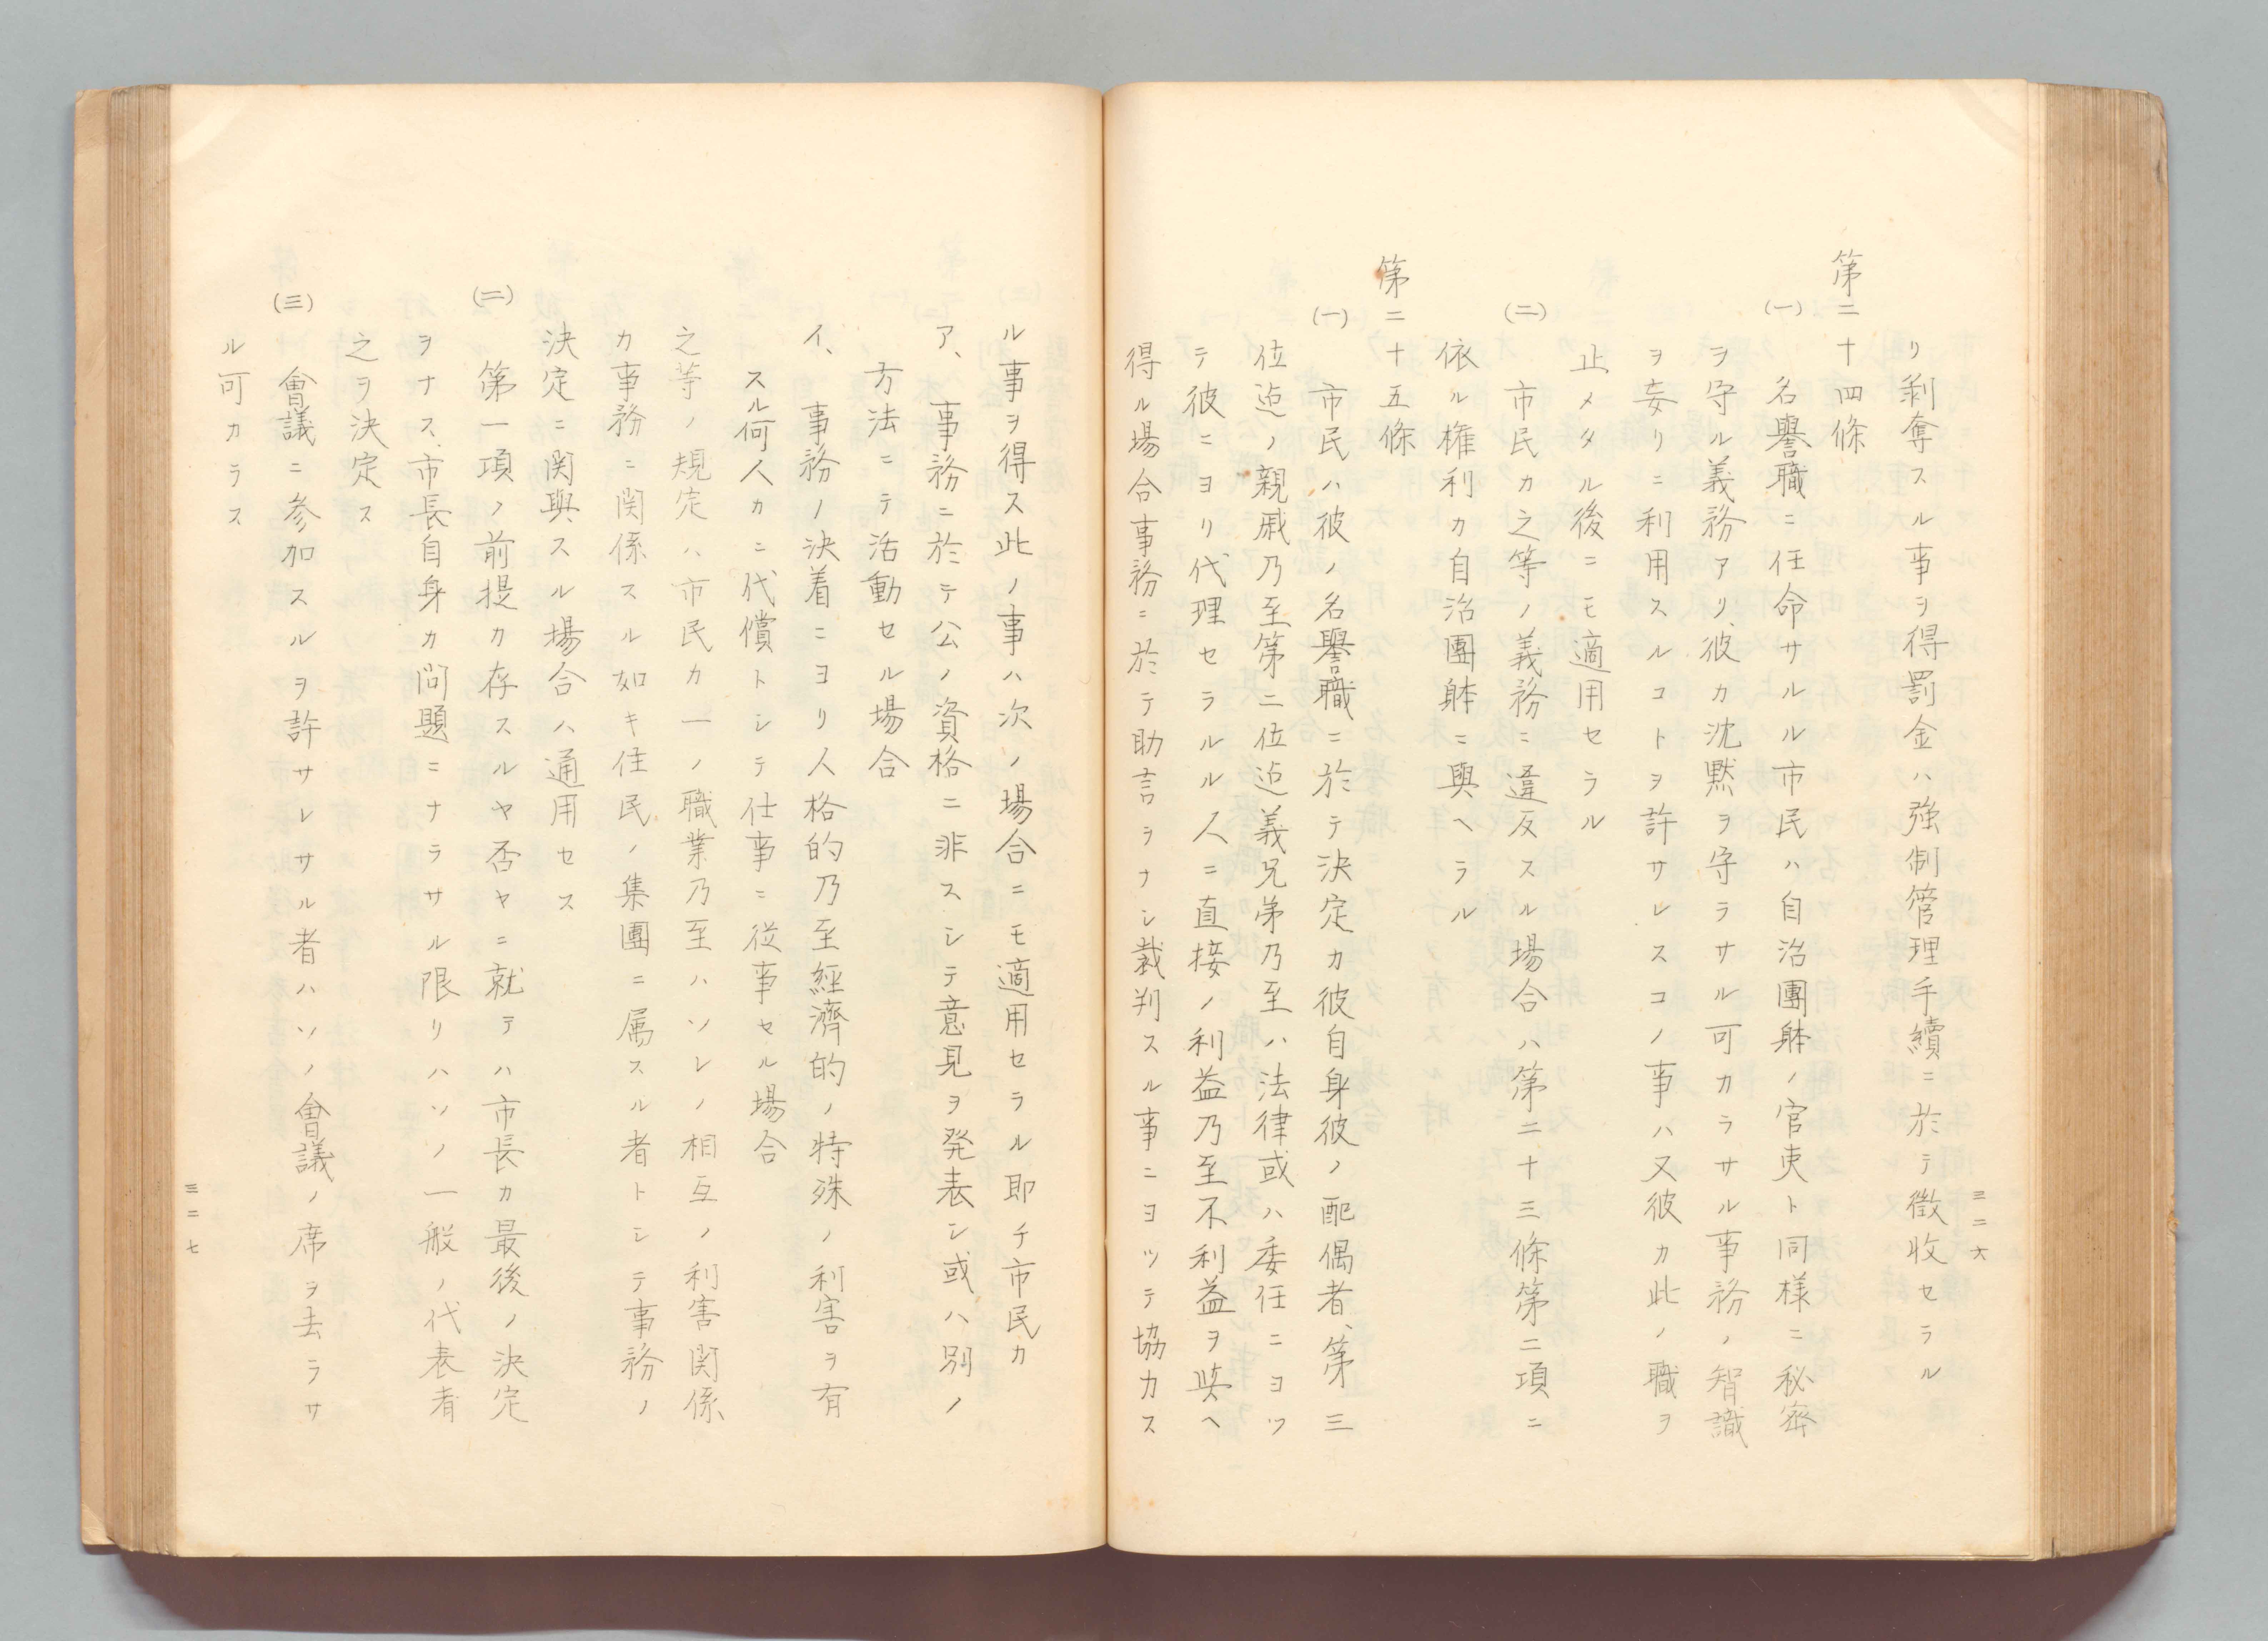 三二六
リ剥奪スル事ヲ得罰金ハ強制管理手續ニ於テ徴收セラル
第二十四條
(一) 名譽職ニ任命サルル市民ハ自治團体ノ官吏ト同様ニ秘密
ヲ守ル義務アリ、彼カ沈黙ヲ守ラサル可カラサル事務ノ智識
ヲ妄リニ利用スルコトヲ許サレスコノ事ハ又彼カ此ノ職ヲ
止メタル後ニモ適用セラル
(二) 市民カ之等ノ義務ニ違反スル場合ハ第二十三條第二項ニ
依ル権利カ自治團体ニ與ヘラル
第二十五條
(一) 市民ハ彼ノ名譽職ニ於テ決定カ彼自身彼ノ配偶者、第三
位迠ノ親戚乃至第二位迠義兄弟乃至ハ法律或ハ委任ニヨツ
テ彼ニヨリ代理セラルル人ニ直接ノ利益乃至不利益ヲ與ヘ
得ル場合事務ニ於テ助言ヲナシ裁判スル事ニヨツテ協力ス
ル事ヲ得ス此ノ事ハ次ノ場合ニモ適用セラル即チ市民カ
ア、事務ニ於テ公ノ資格ニ非スシテ意見ヲ発表シ或ハ別ノ
方法ニテ活動セル場合
イ、事務ノ決着ニヨリ人格的乃至經濟的ノ特殊ノ利害ヲ有
スル何人カニ代償トシテ仕事ニ従事セル場合
之等ノ規定ハ市民カ一ノ職業乃至ハソレノ相互ノ利害関係
カ事務ニ関係スル如キ住民ノ集團ニ属スル者トシテ事務ノ
決定ニ関與スル場合ハ通用セス
(二) 第一項ノ前提カ存スルヤ否ヤニ就テハ市長カ最後ノ決定
ヲナス、市長自身カ問題ニナラサル限リハソノ一般ノ代表者
之ヲ決定ス
(三) 會議ニ参加スルヲ許サレサル者ハソノ會議ノ席ヲ去ラサ
ル可カラス
三二七